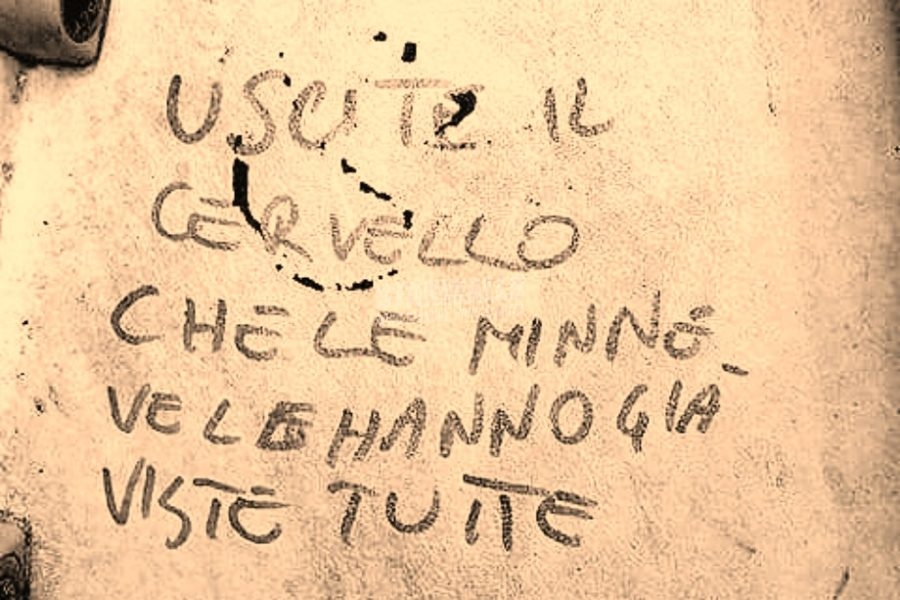 USCITE IL
CERVELLO
CHE LE MINNE
VE LE HANNO GIÀ
VISTE TUTTE